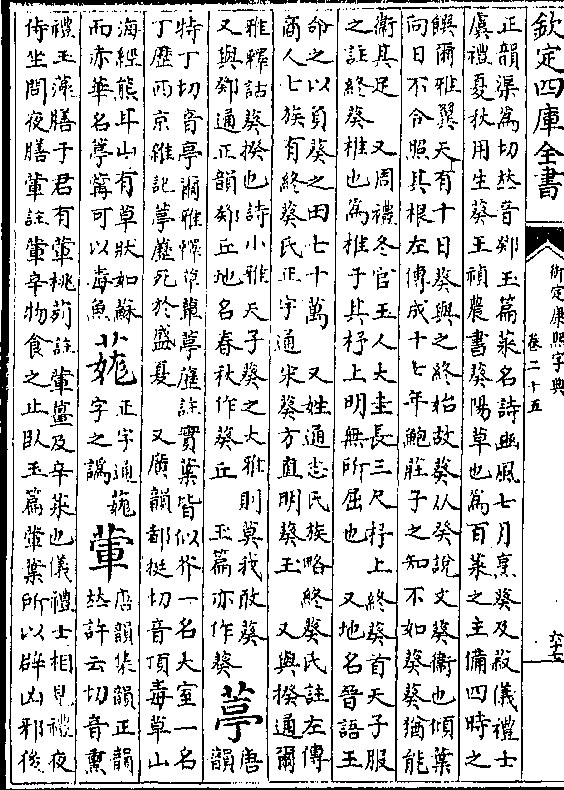 欽定四庫全書
御定康熙字典
卷二十五
六十七
正韻渠為切𠀤音鄈玉篇菜名詩豳風七月烹葵及菽儀禮士
虞禮夏秋用生葵王禎農書葵陽草也為百菜之主備四時之
饌爾雅翼天有十日葵與之終始故葵从癸說文葵衛也傾葉
向日不令照其根左傳成十七年鮑莊子之知不如葵葵猶能
衛其足　又周禮冬官玉人大圭長三尺杼上終葵首天子服
之註終葵椎也為椎于其杼上明無所屈也　又地名晉語王
命之以負葵之田七十萬　又姓通志氏族略終葵氏註左傳
商人七族有終葵氏正字通宋葵方直明葵玉　又與揆通爾
雅釋詁葵揆也詩小雅天子葵之大雅則莫我敢葵
又與鄈通正韻鄈丘地名春秋作葵丘　玉篇亦作葵
葶
唐
韻
特丁切音亭爾雅釋草蕇葶藶註實葉皆似芥一名大室一名
丁歷西京雜記葶藶死於盛夏　又廣韻都挺切音頂毒草山
海經熊耳山有草狀如蘇
而赤華名葶薴可以毒魚
正字通
字之譌
葷
唐韻集韻正韻
𠀤許云切音熏
禮玉藻膳于君有葷桃茢註葷薑及辛菜也儀禮士相見禮夜
侍坐問夜膳葷註葷辛物食之止臥玉篇葷菜所以辟凶邪後